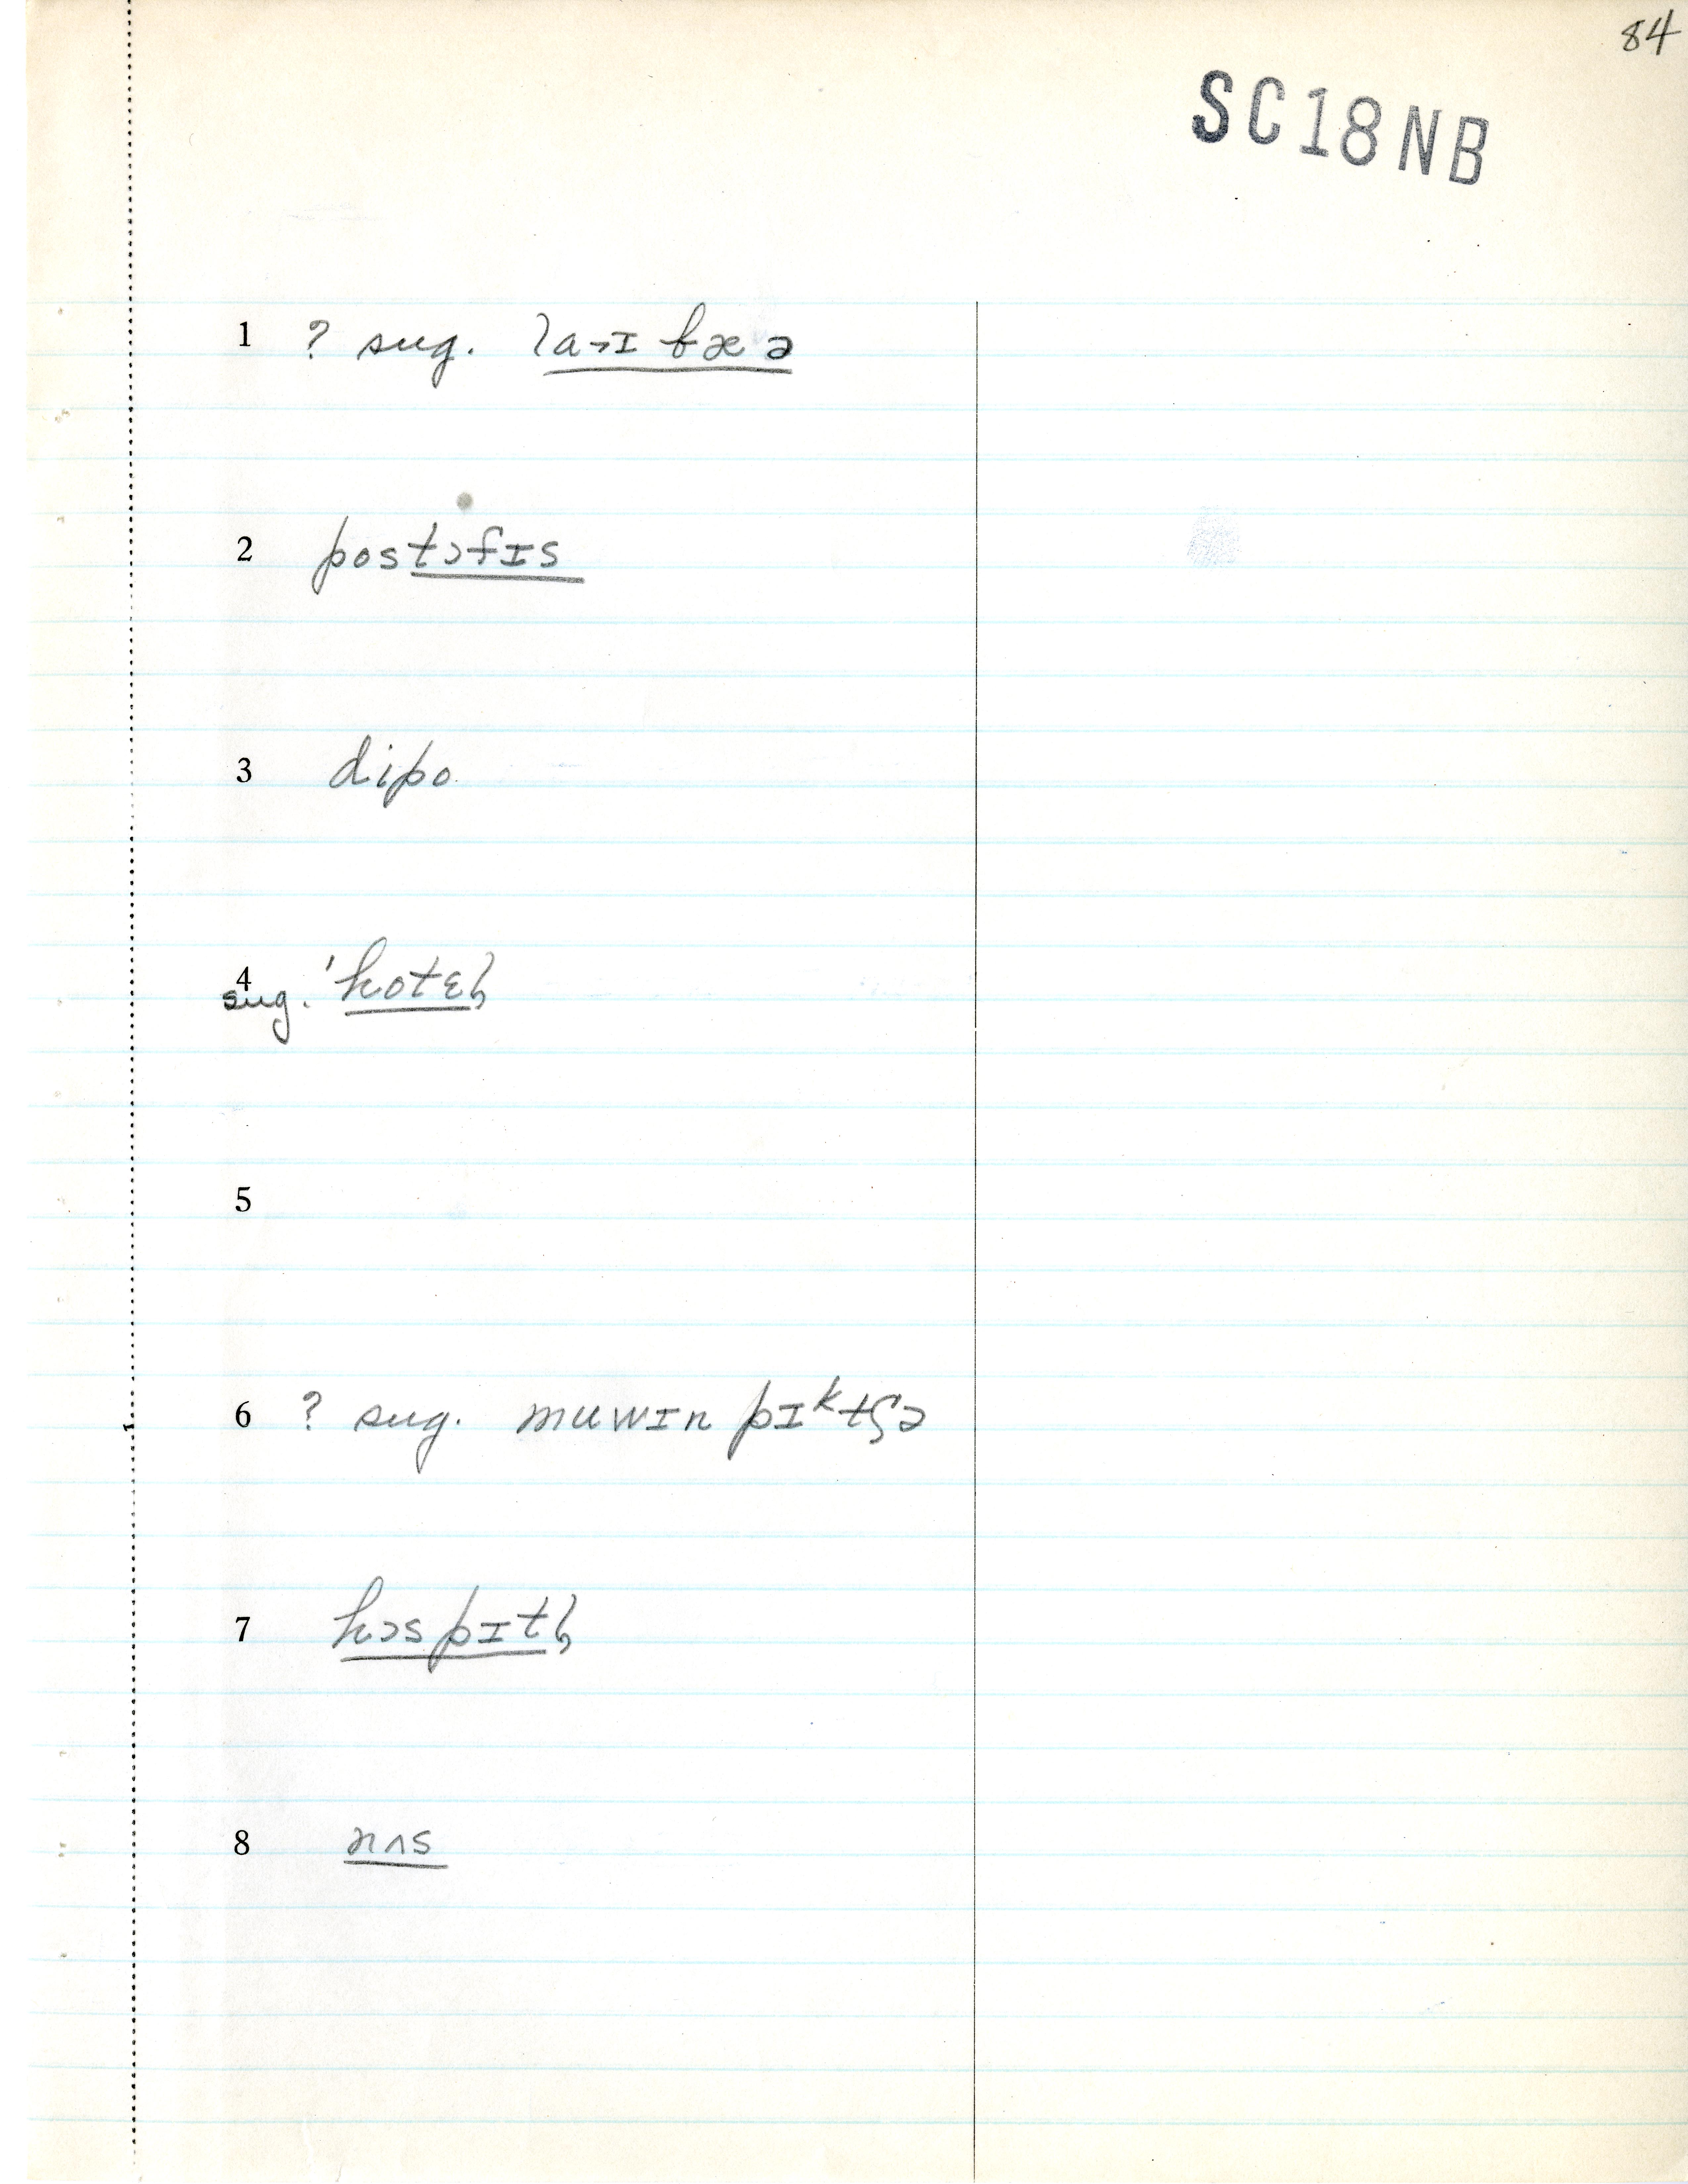 84
SC18NB
1 ? sug. laˑɪbæə
2 postɔfɪs
3 dipo
4 sug. 'hotɛl̩
5
6 ? sug. muwɪn pɪᵏtʃə
7 hɔspɪtl̩
8 nʌs